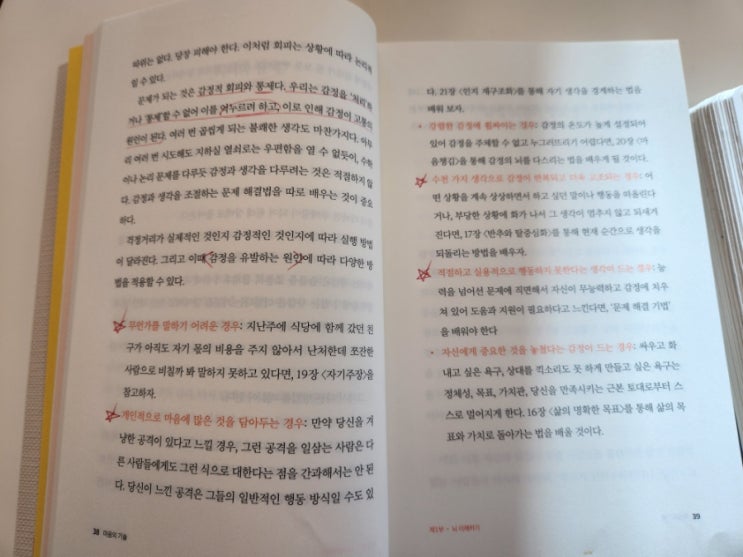 따위는 없다. 당장 피해야 한다. 이처럼 회피는 상황에 따라 논리적
일 수 있다.
문제가 되는 것은 감정적 회피와 통제다. 우리는 감정을 '처리'하
거나 '통제'할 수 없어 이를 억누르려 하고, 이로 인해 감정이 고통의
원인이 된다. 여러 번 곱씹게 되는 불쾌한 생각도 마찬가지다. 아무
리 여러 번 시도해도 지하실 열쇠로는 우편함을 열 수 없듯이, 수학
이나 논리 문제를 다루듯 감정과 생각을 다루려는 것은 적절하지 않
다. 감정과 생각을 조절하는 문제 해결법을 따로 배우는 것이 중요
하다.
걱정거리가 실제적인 것인지 감정적인 것인지에 따라 실행 방법
이 달라진다. 그리고 이때 감정을 유발하는 원인에 따라 다양한 방
법을 적용할 수 있다.
무언가를 말하기 어려운 경우: 지난주에 식당에 함께 갔던 친
구가 아직도 자기 몫의 비용을 주지 않아서 난처한데 쪼잔한
사람으로 비칠까 봐 말하지 못하고 있다면, 19장 <자기주장>을
참고하자.
개인적으로 마음에 많은 것을 담아두는 경우: 만약 당신을 겨
냥한 공격이 있다고 느낄 경우, 그런 공격을 일삼는 사람은 다
른 사람들에게도 그런 식으로 대한다는 점을 간과해서는 안 된
다. 당신이 느낀 공격은 그들의 일반적인 행동 방식일 수도 있
38 마음의 기술
다. 21장 <인지 재구조화>를 통해 자기 생각을 경계하는 법을
배워 보자.
• 강렬한 감정에 휩싸이는 경우: 감정의 온도가 높게 설정되어
있어 감정을 주체할 수 없고 누그러뜨리기 어렵다면, 20장 <마
음챙김>을 통해 감정의 뇌를 다스리는 법을 배우게 될 것이다.
수천 가지 생각으로 감정이 반복되고 더욱 고조되는 경우: 어
떤 상황을 계속 상상하면서 하고 싶던 말이나 행동을 떠올린다
거나, 부당한 상황에 화가 나서 그 생각이 멈추지 않고 되새겨
진다면, 17장 <반추와 탈중심화>를 통해 현재 순간으로 생각을
되돌리는 방법을 배우자.
적절하고 실용적으로 행동하지 못한다는 생각이 드는 경우: 능
력을 넘어선 문제에 직면해서 자신이 무능력하고 감정에 치우
쳐 있어 도움과 지원이 필요하다고 느낀다면, '문제 해결 기법'
을 배워야 한다
• 자신에게 중요한 것을 놓쳤다는 감정이 드는 경우: 싸우고 화
내고 싶은 욕구, 상대를 찍소리도 못 하게 만들고 싶은 욕구는
정체성, 목표, 가치관, 당신을 만족시키는 근본 토대로부터 스
스로 멀어지게 한다. 16장 <삶의 명확한 목표>를 통해 삶의 목
표와 가치로 돌아가는 법을 배울 것이다.
제1부 • 뇌 이해하기
39